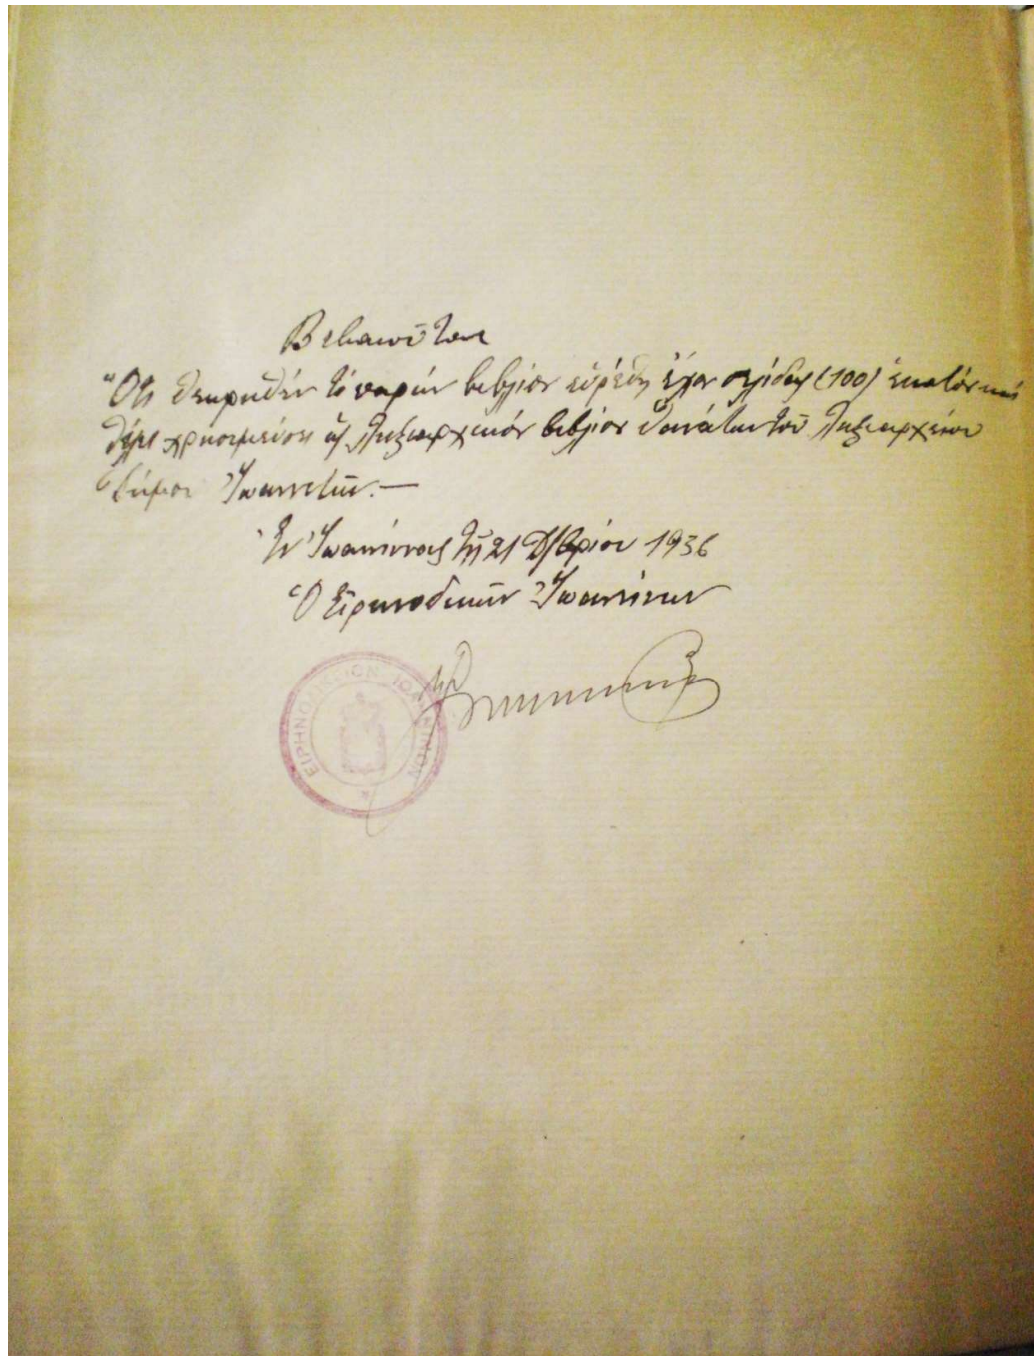 Βεβαιοῦται
Ὅτι θεωρηθὲν τὸ παρὸν βιβλίον εὑρέθη ἔχον σελίδας (100) ἑκατὸν καὶ
θέλει χρησιμεύσει ὡς Ληξιαρχικόν βιβλίον θανάτων τοῦ Ληξιαρχείου
Δήμου Ἰωαννιτῶν.—
Ἐν Ἰωαννίνοις τῇ 21 Δ/βρίου 1936
Ὁ Εἰρηνοδίκης Ἰωαννίνων
ΕΙΡΗΝΟΔΙΚΕΙΟΝ ΙΩΑΝΝΙΝΩΝ